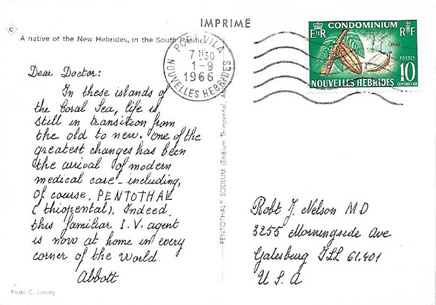 IMPRIMÉ
A native of the New Hebrides, in the South Pacific
PORT-VILA
7 H 30
1-9
1966
NOUVELLES HEBRIDES
CONDOMINIUM
E II R
RF
POSTES
10
NOUVELLES HÉBRIDES
Dear Doctor:
In these islands of
the Coral Sea, life is
still in transition from
the old to new. One of the
greatest changes has been
the arrival of modern
medical care - including,
of course, PENTOTHAL
(thiopental). Indeed,
this familiar I.V. agent
is now at home in every
corner of the world
Abbott
PENTOTHAL SODIUM (Sodium Thiopental,
Robt J. Nelson MD
3255 Morningside Ave
Galesburg ILL 61401
U.S.A